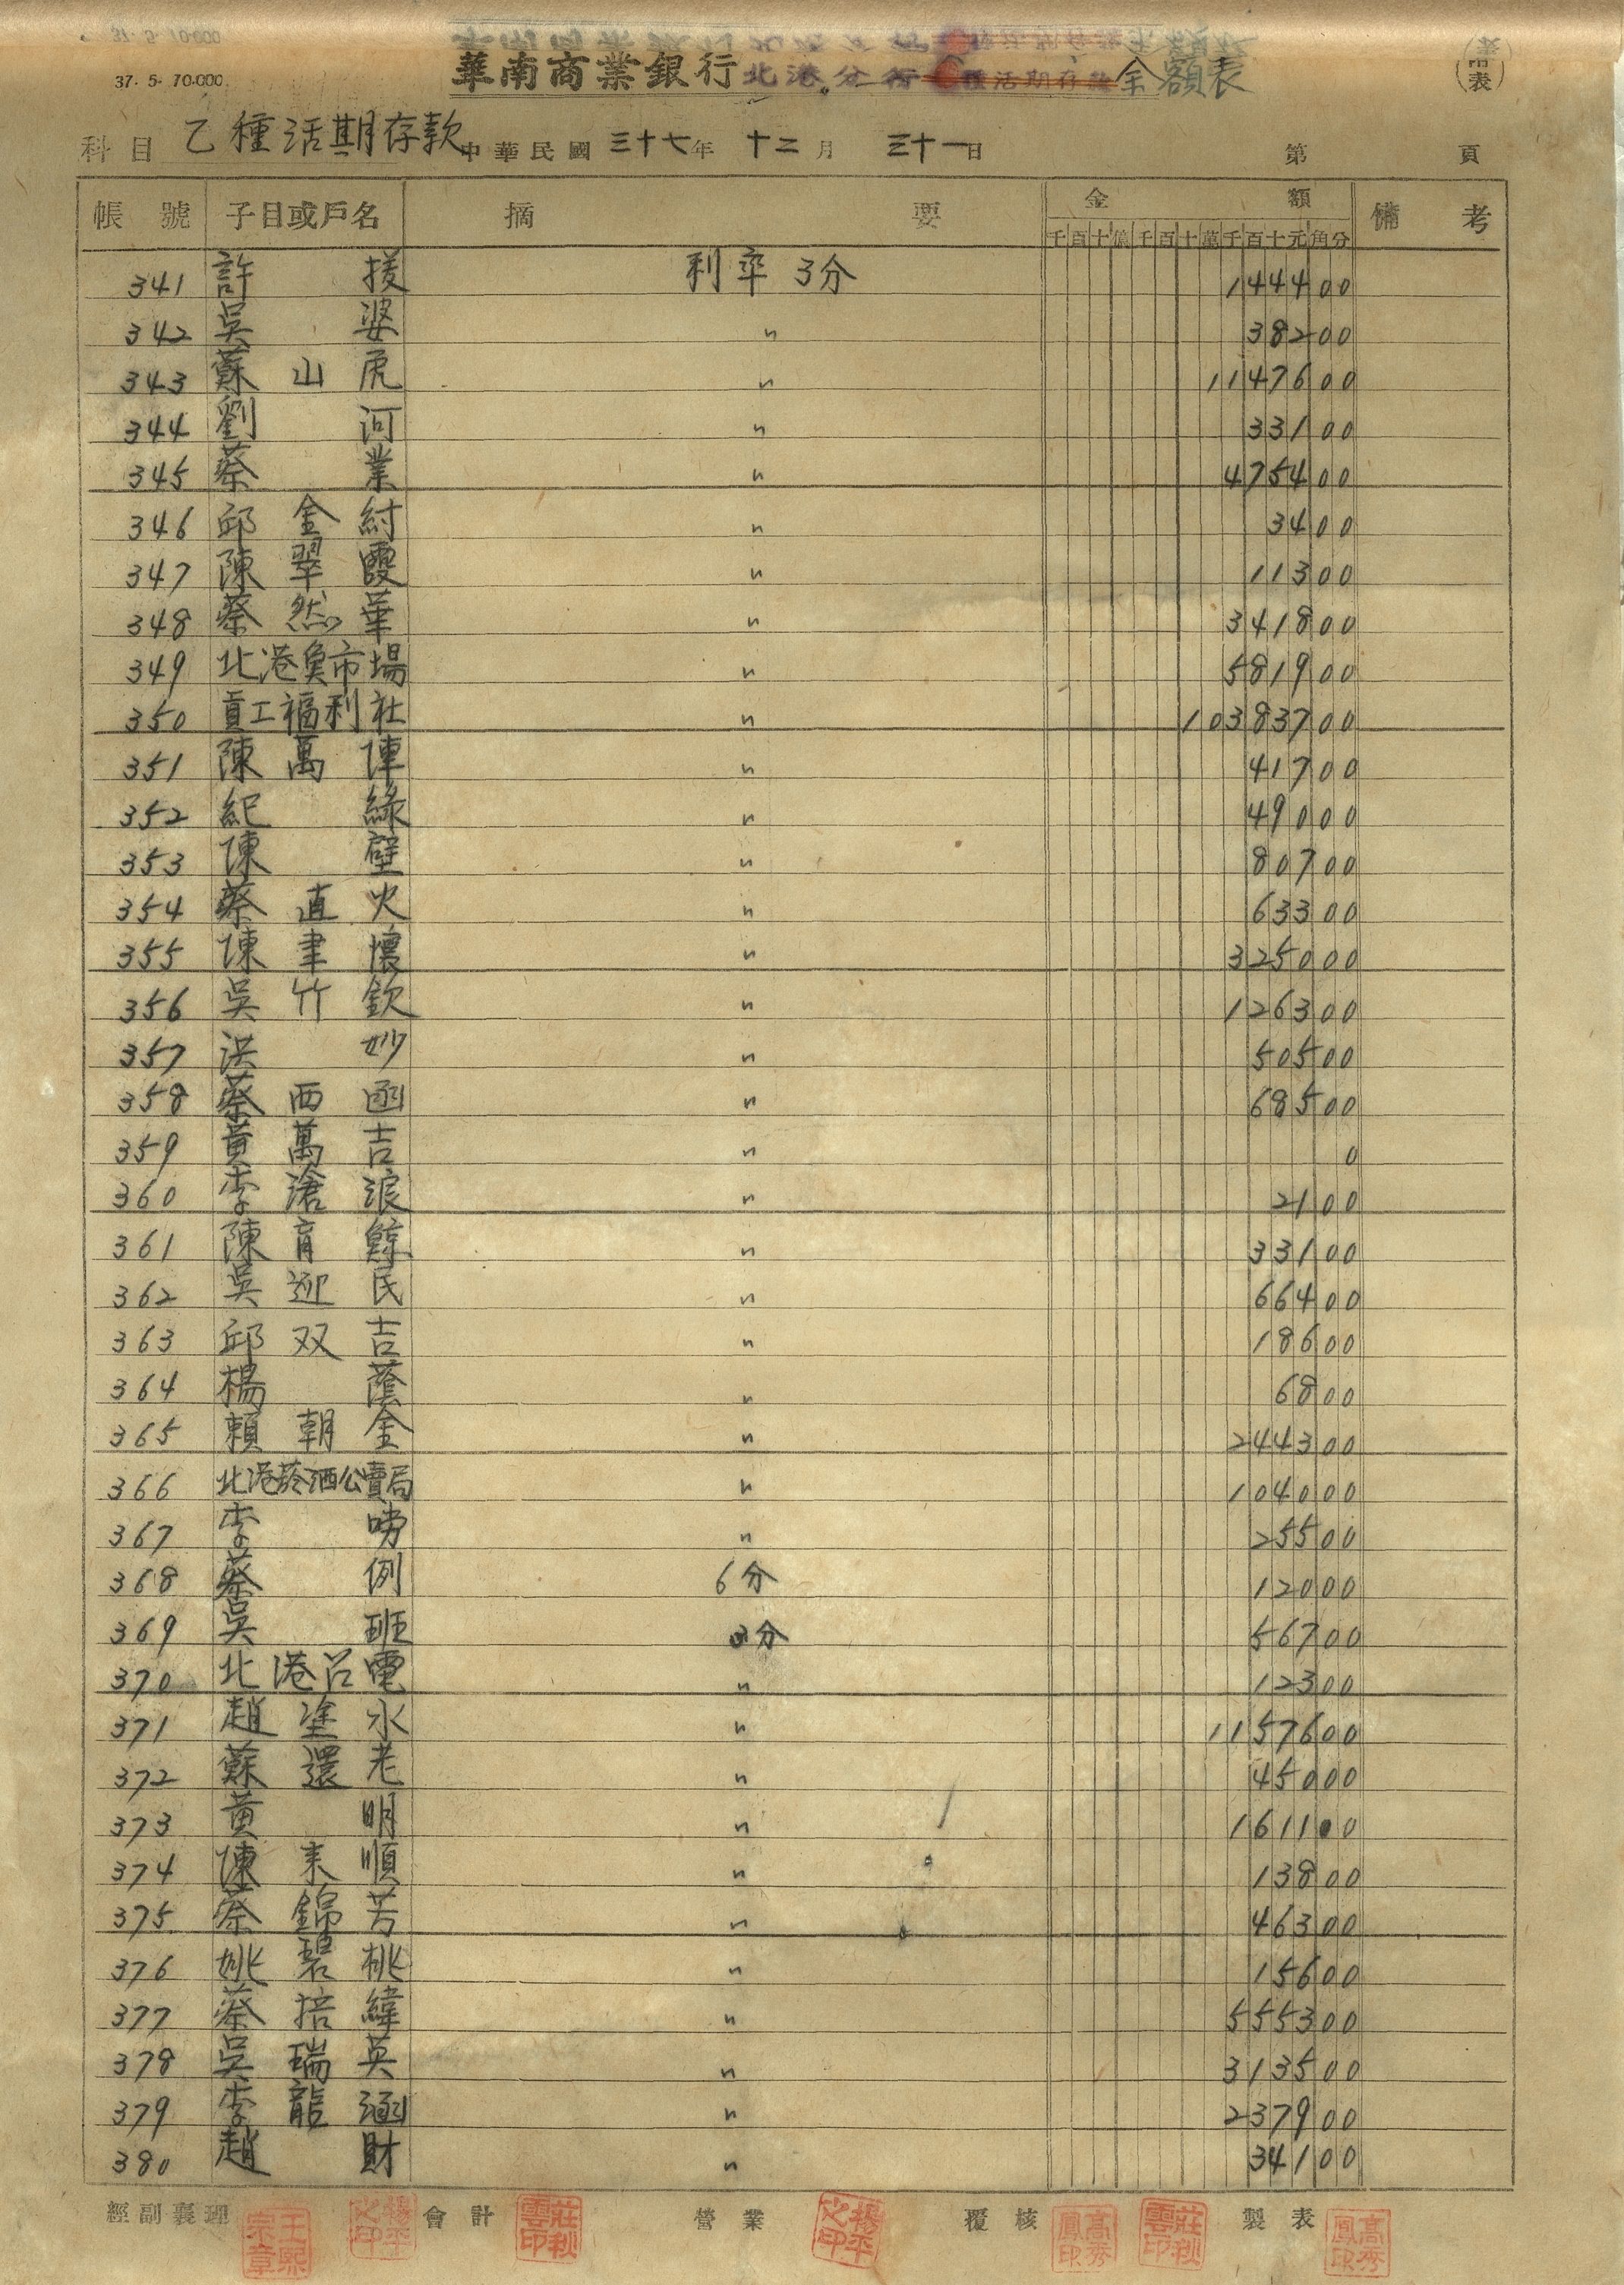 37. 5. 70.000.
華南商業銀行北港分行 種活期存款余額表
科目 乙種活期存款 中華民國三十七年 十二月 三十一日 第 頁
帳號 子目或戶名 摘要 金額 備考
千百十億千百十萬千百十元角分
341 許 援 利率 3分 1444 00
342 吳 婆 〃 382 00
343 蘇山虎 〃 11476 00
344 劉 河 〃 331 00
345 蔡 業 〃 4754 00
346 邱金紂 〃 34 00
347 陳翠霞 〃 113 00
348 蔡然華 〃 3418 00
349 北港魚市場 〃 5819 00
350 員工福利社 〃 103837 00
351 陳萬陣 〃 417 00
352 紀 綠 〃 490 00
353 陳 壁 〃 807 00
354 蔡直火 〃 633 00
355 陳聿懷 〃 3250 00
356 吳竹欽 〃 1263 00
357 洪 妙 〃 505 00
358 蔡西函 〃 685 00
359 黃萬吉 〃 0
360 李滄浪 〃 21 00
361 陳育鯨 〃 331 00
362 吳迎民 〃 664 00
363 邱双吉 〃 186 00
364 楊 蔭 〃 68 00
365 賴朝金 〃 2443 00
366 北港菸酒公賣局 〃 1040 00
367 李 嘮 〃 255 00
368 蔡 例 6分 120 00
369 吳 班 3分 567 00
370 北港呂電 〃 123 00
371 趙塗水 〃 11576 00
372 蘇還老 〃 450 00
373 黃 明 〃 1611 00
374 陳来順 〃 138 00
375 蔡錦芳 〃 463 00
376 姚碧桃 〃 156 00
377 蔡掊緯 〃 5553 00
378 吳瑞英 〃 3135 00
379 李龍涵 〃 2379 00
380 趙 財 〃 341 00
經副襄理 會計 營業 覆核 製表
王熙宗章 楊平之印 莊秋雲印 楊平之印 高秀鳳印 莊秋雲印 高秀鳳印